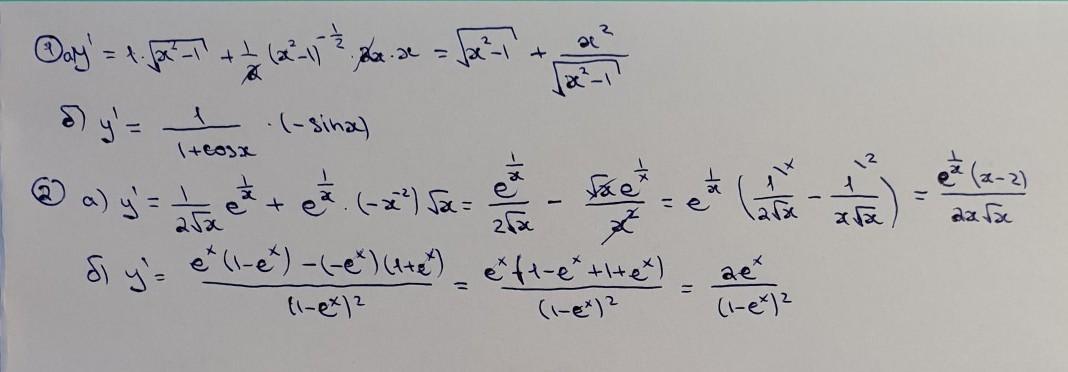 ① a) y' = 1·√(x²-1) + 1/2 (x²-1)^(-1/2) · 2x · x = √(x²-1) + x²/√(x²-1)
б) y' = 1/(1+cosx) · (-sinx)
② a) y' = 1/(2√x) e^(1/x) + e^(1/x) · (-x⁻²) √x = e^(1/x)/(2√x) - √x e^(1/x)/x² = e^(1/x) (1\x/(2√x) - 1\2/(x√x)) = e^(1/x) (x-2)/(2x√x)
б) y' = (e^x (1-e^x) - (-e^x)(1+e^x))/(1-e^x)² = e^x (1-e^x+1+e^x)/(1-e^x)² = 2e^x/(1-e^x)²